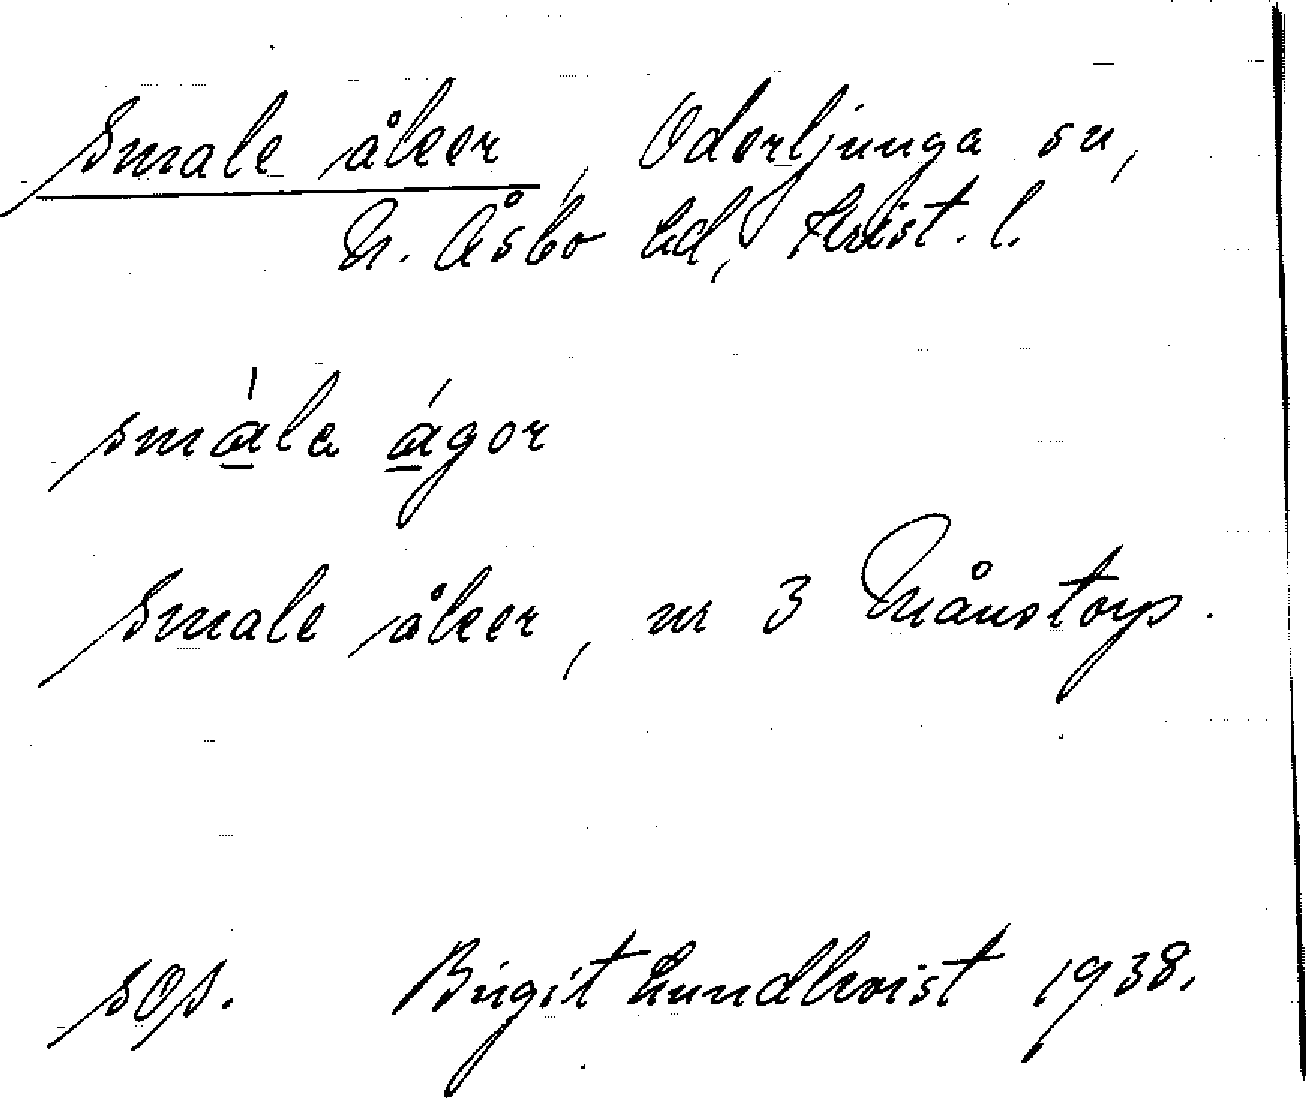 Smale åker, Oderljunga sn,
N. Åsbo hd, Krist. l.
smála ágor
Smale åker, nr 3 Månstorp.
sOs. Birgit Lundkvist 1938.